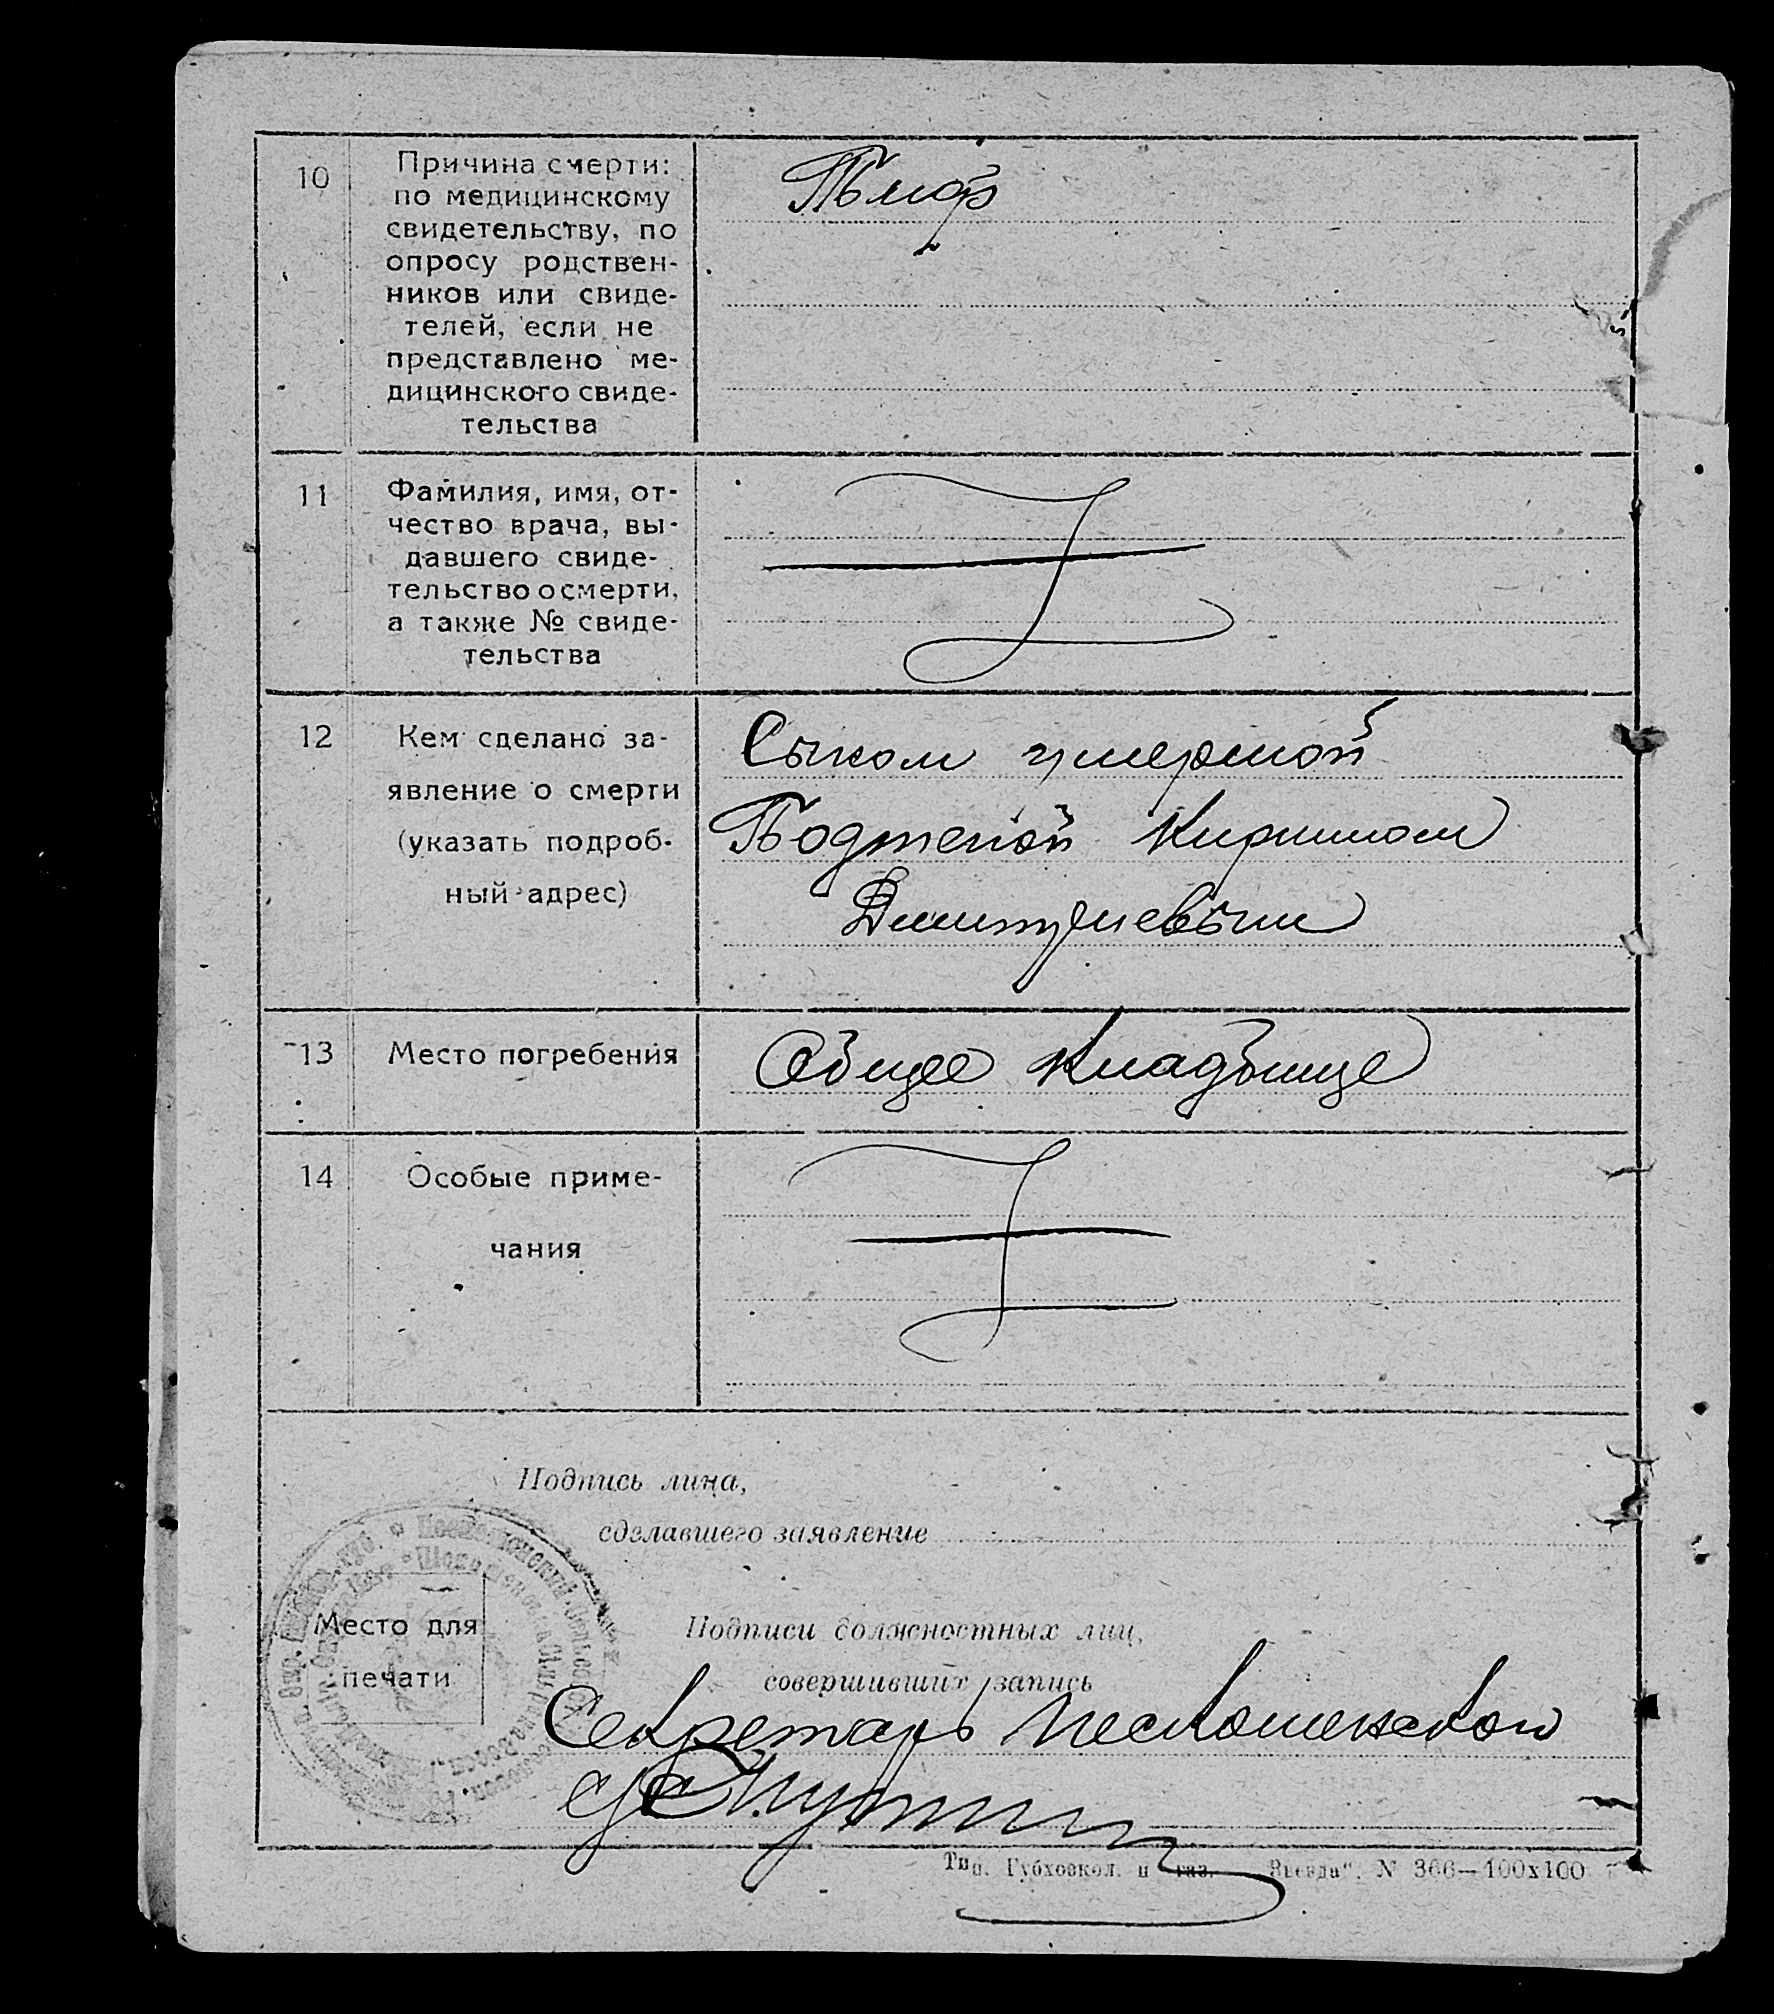 10
Причина смерти:
по медицинскому
свидетельству, по
опросу родствен-
ников или свиде-
телей, если не
представлено ме-
дицинского свиде-
тельства
Тыиф
11
Фамилия, имя, от-
чество врача, вы-
давшего свиде-
тельство о смерти,
а также № свиде-
тельства
12
Кем сделано за-
явление о смерти
(указать подроб-
ный адрес)
Сыном умершой
Кирилом
Дмитриевым
13
Место погребения
Общее Кладбище
14
Особые приме-
чания
Подпись лица,
сделавшего заявление
Место для
печати
Подписи должностных лиц,
совершивших запись
Секретарь
Тип. Губхозкол. и газ. Звезда". N 366—100х100